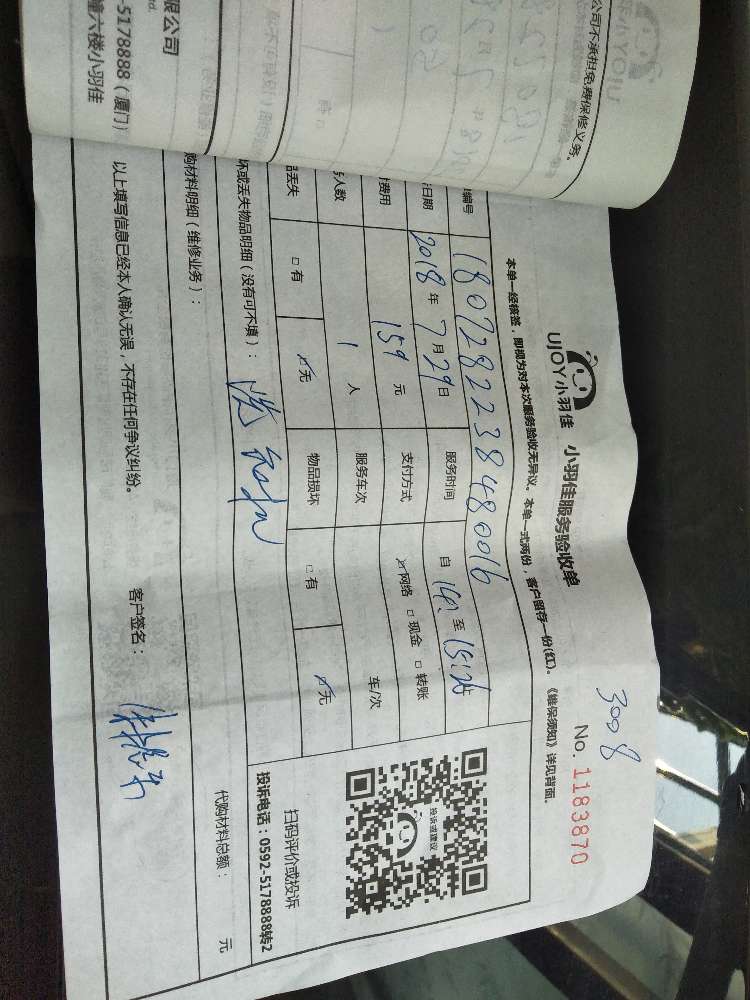 UJOY小羽佳 小羽佳服务验收单
3008
No. 1183870
本单一经核签，即视为对本次服务验收无异议。本单一式两份，客户留存一份(红)。《维保须知》详见背面。
编号 1807282238480016
日期 2018年7月29日 服务时间 自 至
费用 159元 支付方式 网络 □现金 □转账
人数 1人 服务车次 车/次
丢失 □有 无 物品损坏 □有 无
坏或丢失物品明细（没有可不填）：
购材料明细（维修业务）：
代购材料总额： 元
以上填写信息已经本人确认无误，不存在任何争议纠纷。 客户签名：
投诉或建议
扫码评价或投诉
投诉电话：0592-5178888转2
公司不承担免费保修义务。
小YOU
限公司
td.
-5178888（厦门）
六楼小羽佳